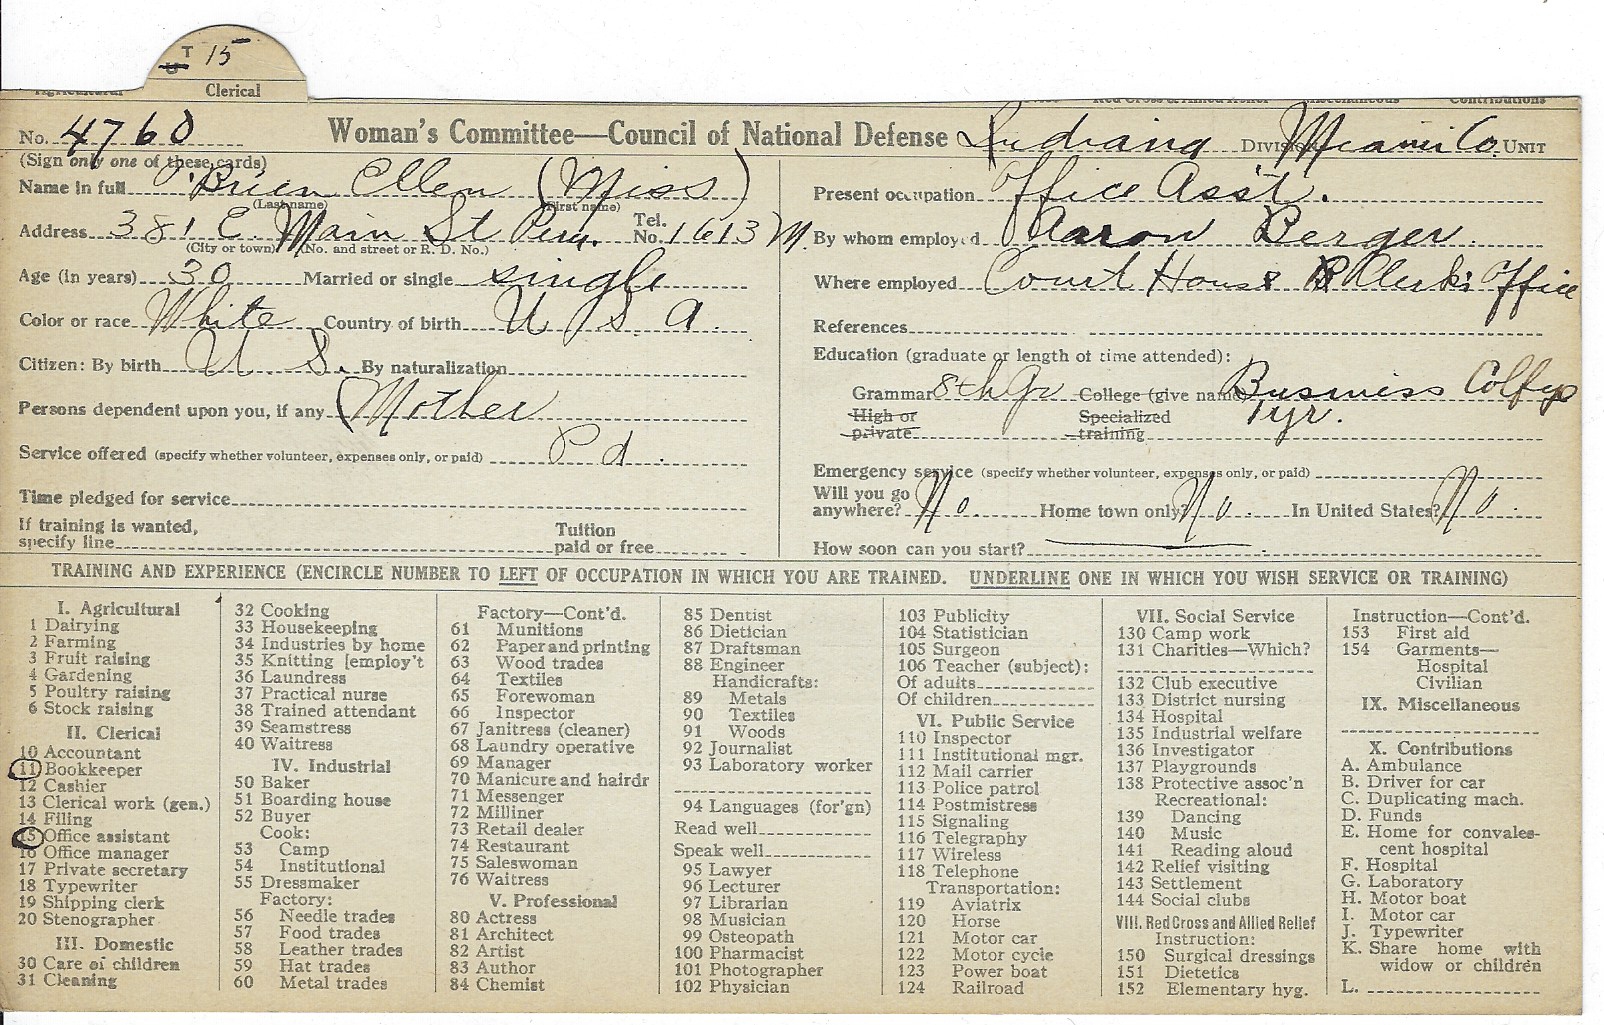 T
U 15
Clerical
No. 4760 Woman's Committee—Council of National Defense Indiana DIVISION Miami Co. UNIT
(Sign only one of these cards)
Name in full O'Brien Ellen (Miss)
(Last name) (First name)
Address 381 E. Main St Peru. Tel. No. 1613 M.
(City or town) (No. and street or R. D. No.)
Age (in years) 30 Married or single single
Color or race White Country of birth U S A.
Citizen: By birth U. S. By naturalization
Persons dependent upon you, if any (Mother
Service offered (specify whether volunteer, expenses only, or paid) Pd.
Time pledged for service
If training is wanted,
specify line
Tuition
paid or free
Present occupation Office Ass't.
By whom employed Aaron Berger.
Where employed Court House Clerk's Office
References
Education (graduate or length of time attended):
Grammar 8th Gr College (give name) Business
High or
private
Specialized
training
1 yr.
Emergency service (specify whether volunteer, expenses only, or paid)
Will you go
anywhere? No. Home town only? No. In United States? No.
How soon can you start?
TRAINING AND EXPERIENCE (ENCIRCLE NUMBER TO LEFT OF OCCUPATION IN WHICH YOU ARE TRAINED. UNDERLINE ONE IN WHICH YOU WISH SERVICE OR TRAINING)
I. Agricultural
1 Dairying
2 Farming
3 Fruit raising
4 Gardening
5 Poultry raising
6 Stock raising
II. Clerical
10 Accountant
11 Bookkeeper
12 Cashier
13 Clerical work (gen.)
14 Filing
15 Office assistant
16 Office manager
17 Private secretary
18 Typewriter
19 Shipping clerk
20 Stenographer
III. Domestic
30 Care of children
31 Cleaning
32 Cooking
33 Housekeeping
34 Industries by home
35 Knitting [employ't
36 Laundress
37 Practical nurse
38 Trained attendant
39 Seamstress
40 Waitress
IV. Industrial
50 Baker
51 Boarding house
52 Buyer
Cook:
53 Camp
54 Institutional
55 Dressmaker
Factory:
56 Needle trades
57 Food trades
58 Leather trades
59 Hat trades
60 Metal trades
Factory—Cont'd.
61 Munitions
62 Paper and printing
63 Wood trades
64 Textiles
65 Forewoman
66 Inspector
67 Janitress (cleaner)
68 Laundry operative
69 Manager
70 Manicure and hairdr
71 Messenger
72 Milliner
73 Retail dealer
74 Restaurant
75 Saleswoman
76 Waitress
V. Professional
80 Actress
81 Architect
82 Artist
83 Author
84 Chemist
85 Dentist
86 Dietician
87 Draftsman
88 Engineer
Handicrafts:
89 Metals
90 Textiles
91 Woods
92 Journalist
93 Laboratory worker
94 Languages (for'gn)
Read well
Speak well
95 Lawyer
96 Lecturer
97 Librarian
98 Musician
99 Osteopath
100 Pharmacist
101 Photographer
102 Physician
103 Publicity
104 Statistician
105 Surgeon
106 Teacher (subject):
Of adults
Of children
VI. Public Service
110 Inspector
111 Institutional mgr.
112 Mail carrier
113 Police patrol
114 Postmistress
115 Signaling
116 Telegraphy
117 Wireless
118 Telephone
Transportation:
119 Aviatrix
120 Horse
121 Motor car
122 Motor cycle
123 Power boat
124 Railroad
VII. Social Service
130 Camp work
131 Charities—Which?
132 Club executive
133 District nursing
134 Hospital
135 Industrial welfare
136 Investigator
137 Playgrounds
138 Protective assoc'n
Recreational:
139 Dancing
140 Music
141 Reading aloud
142 Relief visiting
143 Settlement
144 Social clubs
VIII. Red Cross and Allied Relief
Instruction:
150 Surgical dressings
151 Dietetics
152 Elementary hyg.
Instruction—Cont'd.
153 First aid
154 Garments—
Hospital
Civilian
IX. Miscellaneous
X. Contributions
A. Ambulance
B. Driver for car
C. Duplicating mach.
D. Funds
E. Home for convales-
cent hospital
F. Hospital
G. Laboratory
H. Motor boat
I. Motor car
J. Typewriter
K. Share home with
widow or children
L.